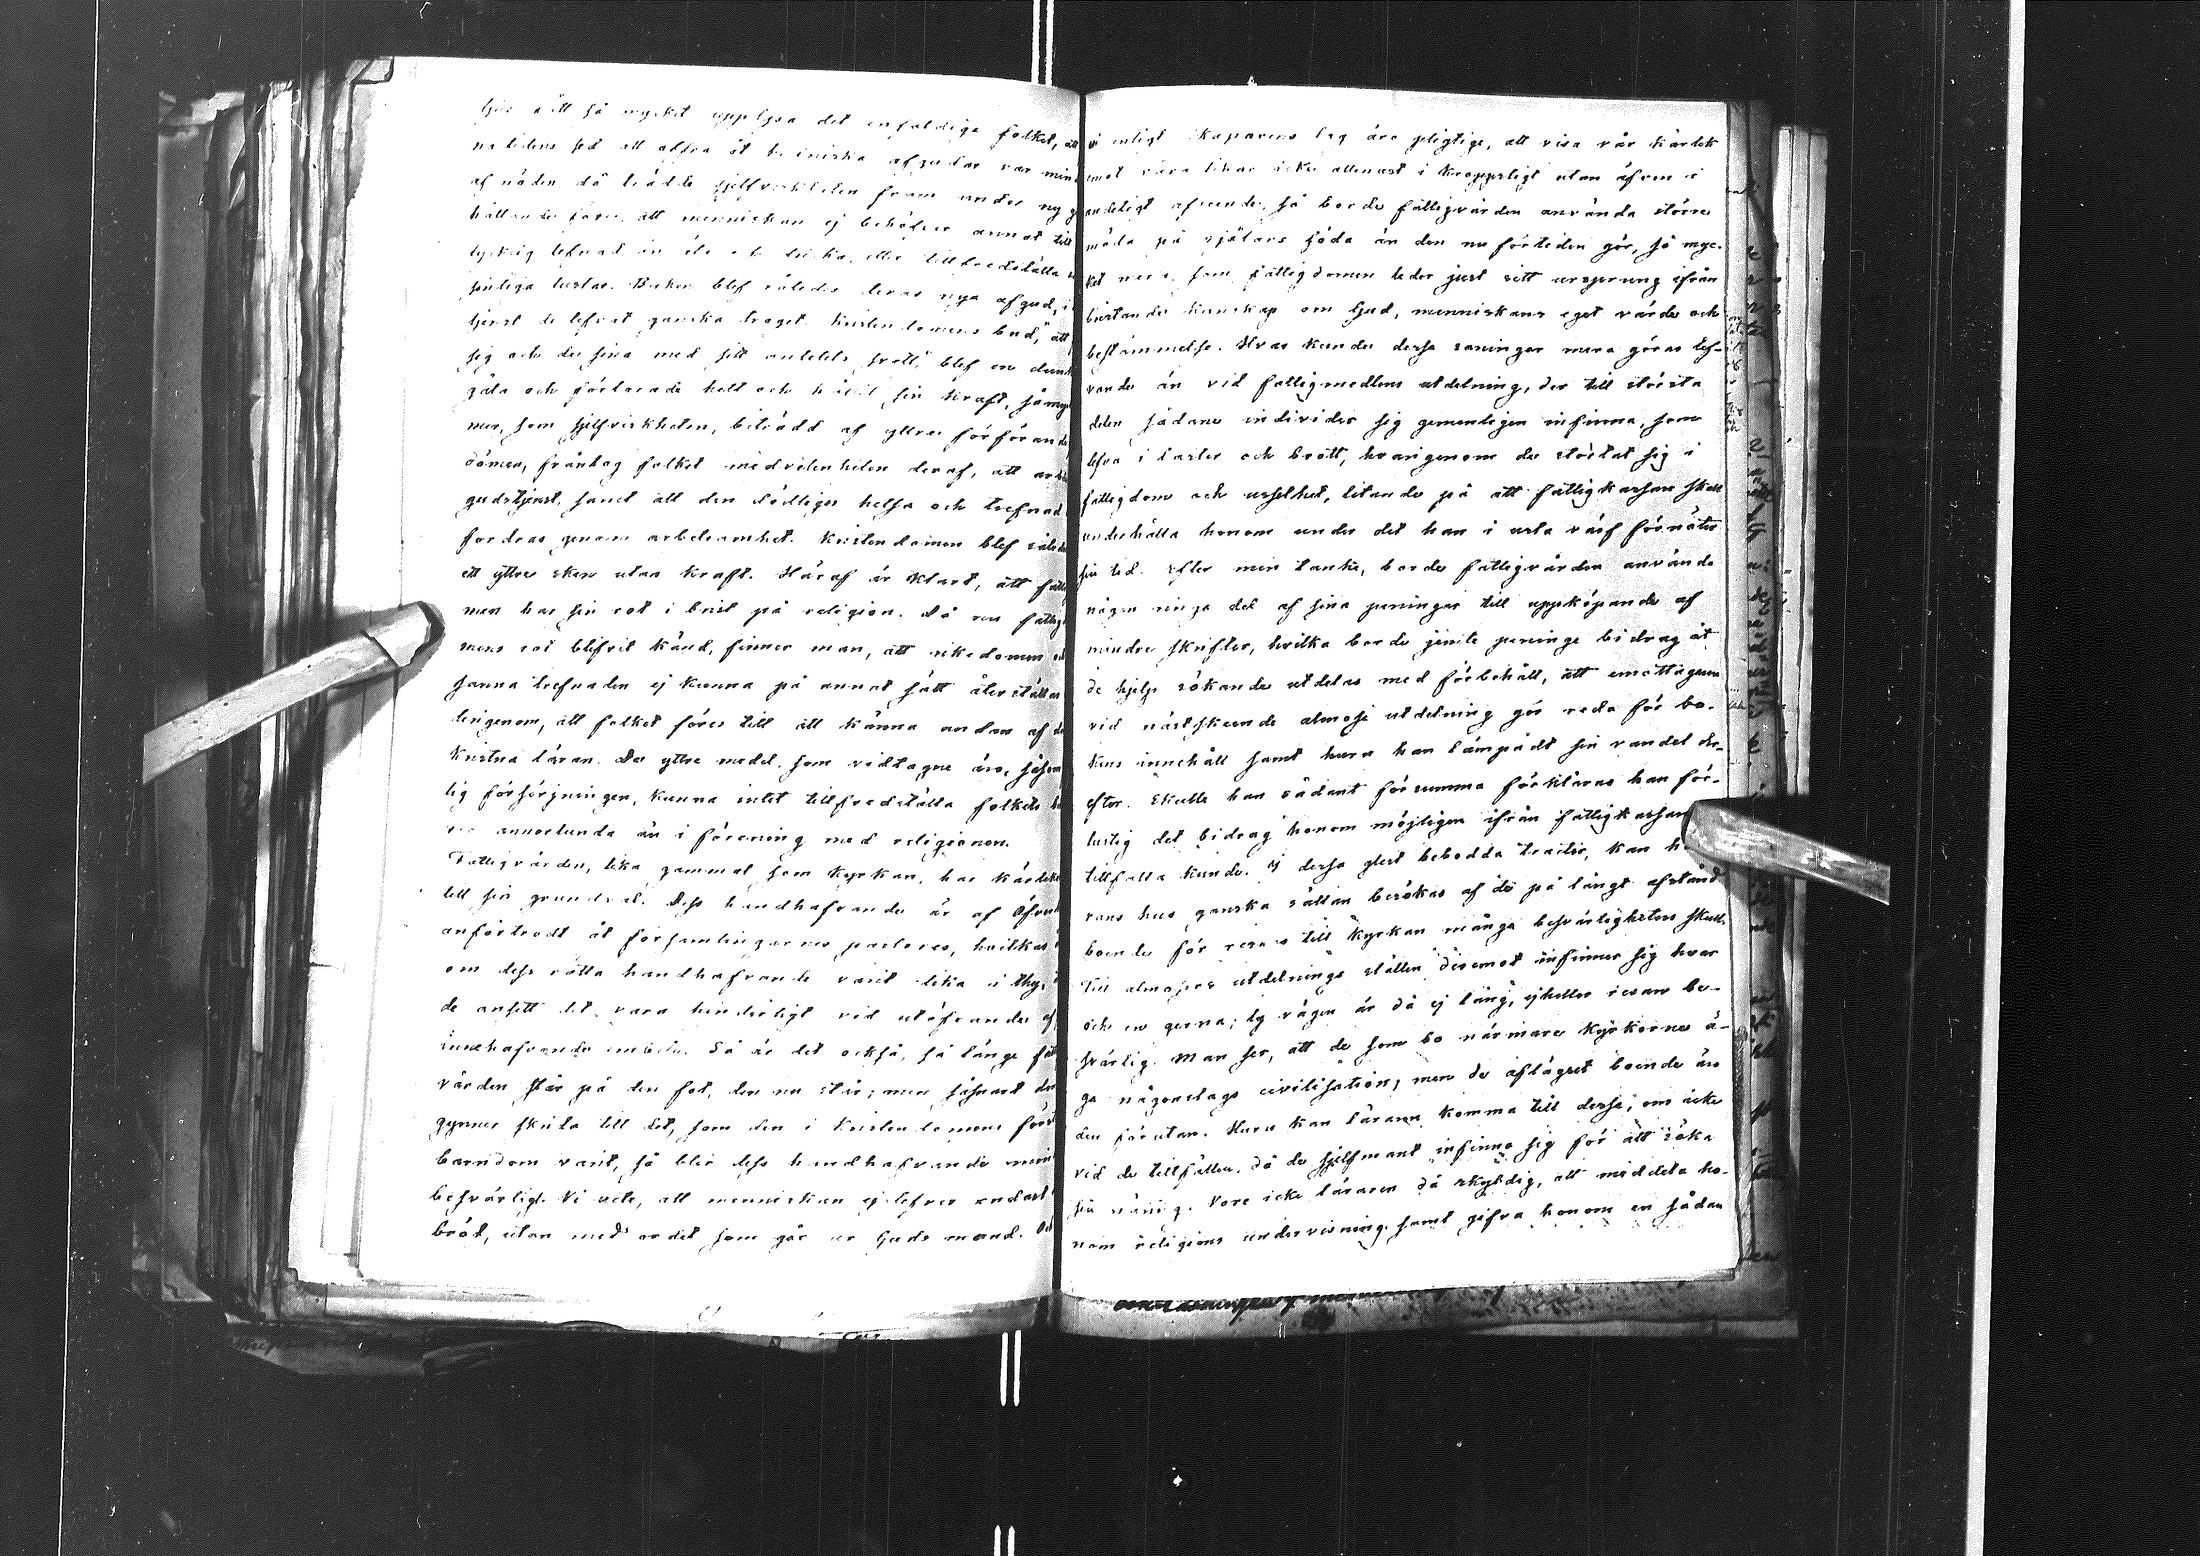 här nätt så mycket upplysa det enfaldiga folket, att
na tidens sed att offra åt beiniska afgudar var min
af nåden då trädde sjelfviskheten fram under ny g
hållande före, att menniskan ej behöfver annat till
lycklig lefnad än äta och dricka, eller tillfredsställa
sinliga lustar. Buken blef således deras nya afgud, i
tjenst de lefvat ganska troget. Kristendomens bud, "att
sig och de sina med sitt anletes svett," blef en dunk
gåta och förlorade helt och hållit sin kraft, så my
mer, som sjelfviskheten, biträdd af yttre förförand
dömen, fråntog folket medvetenheten deraf, att arb
gudstjenst, samt att den dödliges helsa och trefnad
fordras genom arbetsamhet. Kristendomen blef således
ett yttre sken utan kraft. Häraf är klart, att fatt
men har sin rot i brist på religion. Då nu fattig
mens rot blefvit känd, finner man, att rikedomen och
sanna trefnaden ej kunna på annat sätt återställas
derigenom, att folket föres till att känna andan af de
kristna läran. De yttre medel, som vidtagne äro, såsom
lig försörjningen, kunna intet tillfredsställa folkets b
annorlunda än i förening med religionen.
Fattigvården, lika gammal som kyrkan, har kärleken
till sin grundval. Dess handhafvande är af Öfver
anförtrodt åt församlingarnes pastorer, hvilkas
om dess rätta handhafvande varit lika i thy,
de ansett det vara hinderligt vid utöfvandet af
innehafvande embete. Så är det också, så länge fat
vården står på den fot, den nu står; men såsnart den
gynner skrida till det, som den i Kristendomens förs
barndom varit, så blir dess handhafvande mind
besvärligt. Vi vete, att menniskan ej lefver endast
bröd, utan med ordet som går ur Guds mund. Då
vi enligt Skaparens lag äro pligtige, att visa vår kärlek
emot våra likar icke allenast i kroppsligt utan äfven i
andeligt afseende, så borde fattigvården använda större
möda på själens föda än den nu för tiden gör, så myc-
ket mer, som fattigdomen leder just sitt ursprung ifrån
bristande kunskap om Gud, menniskans eget värde och
bestämmelse. Hvar kunde dessa saningar mera göras lef-
vande än vid fattigmedlens utdelning, der till största
delen sådane individer sig gemenligen infinna, som
lefva i laster och brott, hvarigenom de störtat sig i
fattigdom och usselhet, litande på att fattigkassan skall
underhålla honom under det han i usla värf förnöter
sin tid. Efter min tanke, borde fattigvården använda
någon ringa del af sina peningar till uppköpande af
mindre skrifter, hvilka borde jemte peninge bidrag åt
de hjelp sökande utdelas med förbehåll, att emottagaren
vid nästskeende almose utdelning gör reda för bo-
kens innehåll samt huru han lämpadt sin vandel der-
efter. Skulle han sådant försumma förklaras han för-
lustig det bidrag honom möjligen ifrån fattigkassan
tillfalla kunde. I dessa glest bebodda trakter, kan h
rans hus ganska sällan besökas af de på långt afstånd
boende för resans till kyrkan många besvärligheters skull.
Till almosors utdelnings ställen deremot infinner sig hvar
och en gerna; ty vägen är då ej lång, ejheller resan be-
svärlig. Man ser, att de som bo närmare kyrkorne ä-
ga någonslags civilisation; men de aflägset boende äro
den förutan. Huru kan läraren komma till desse, om icke
vid de tillfällen, då de sjelfmant infinna sig för att söka
sin näring. Vore icke läraren då skyldig, att meddela ho-
nom religions undervisning samt gifva honom en sådan